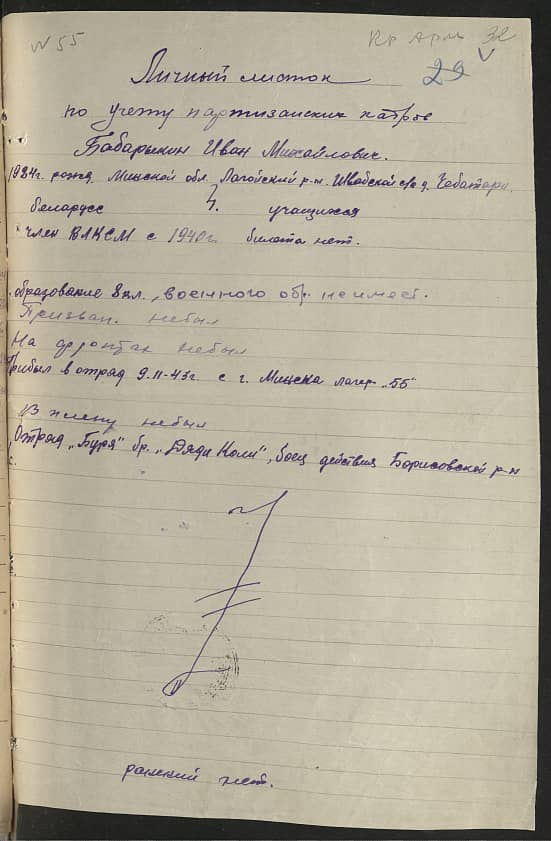 N 55
Кр Арм 32
29
Личный листок
по учету партизанских кадров
Бабарыкин Иван Михайлович.
1924г. рожд. Минской обл. Лагойский р-н. с/с д.
беларусс 4. учащийся
член ВЛКСМ с 1940г. билета нет.
образование 8 кл., военного обр. не имеет.
Призван. небыл
На фронтах небыл
Прибыл в отряд 9.11-43г. с г. Минска лагер. "55"
В плену небыл
Отряд "Буря" бр. "Дяди Коли", боец действия Борисовской р-н
ранений нет.